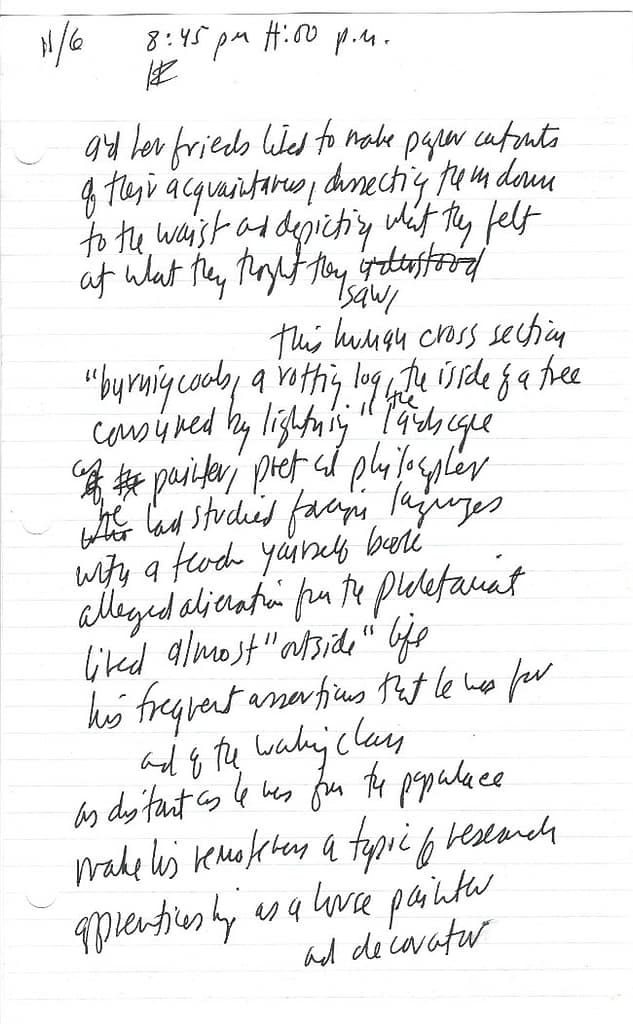 11/6 8:45 pm 4:00 p.m.
and her friends liked to make paper cutouts
of their acquaintances, dissecting them down
to the waist and depicting what they felt
at what they thought they understood
saw,
this human cross section
"burning coals, a rotting log, the inside of a tree
the
consumed by lightning" landscape
painter, poet and philosopher
he
who had studied foreign languages
with a teach yourself book
alleged alienation from the proletariat
lived almost "outside" life
his frequent assertions that he was for
and of the working class
as distant as he was from the populace
make his remoteness a topic of research
apprenticeship as a house painter
and decorator